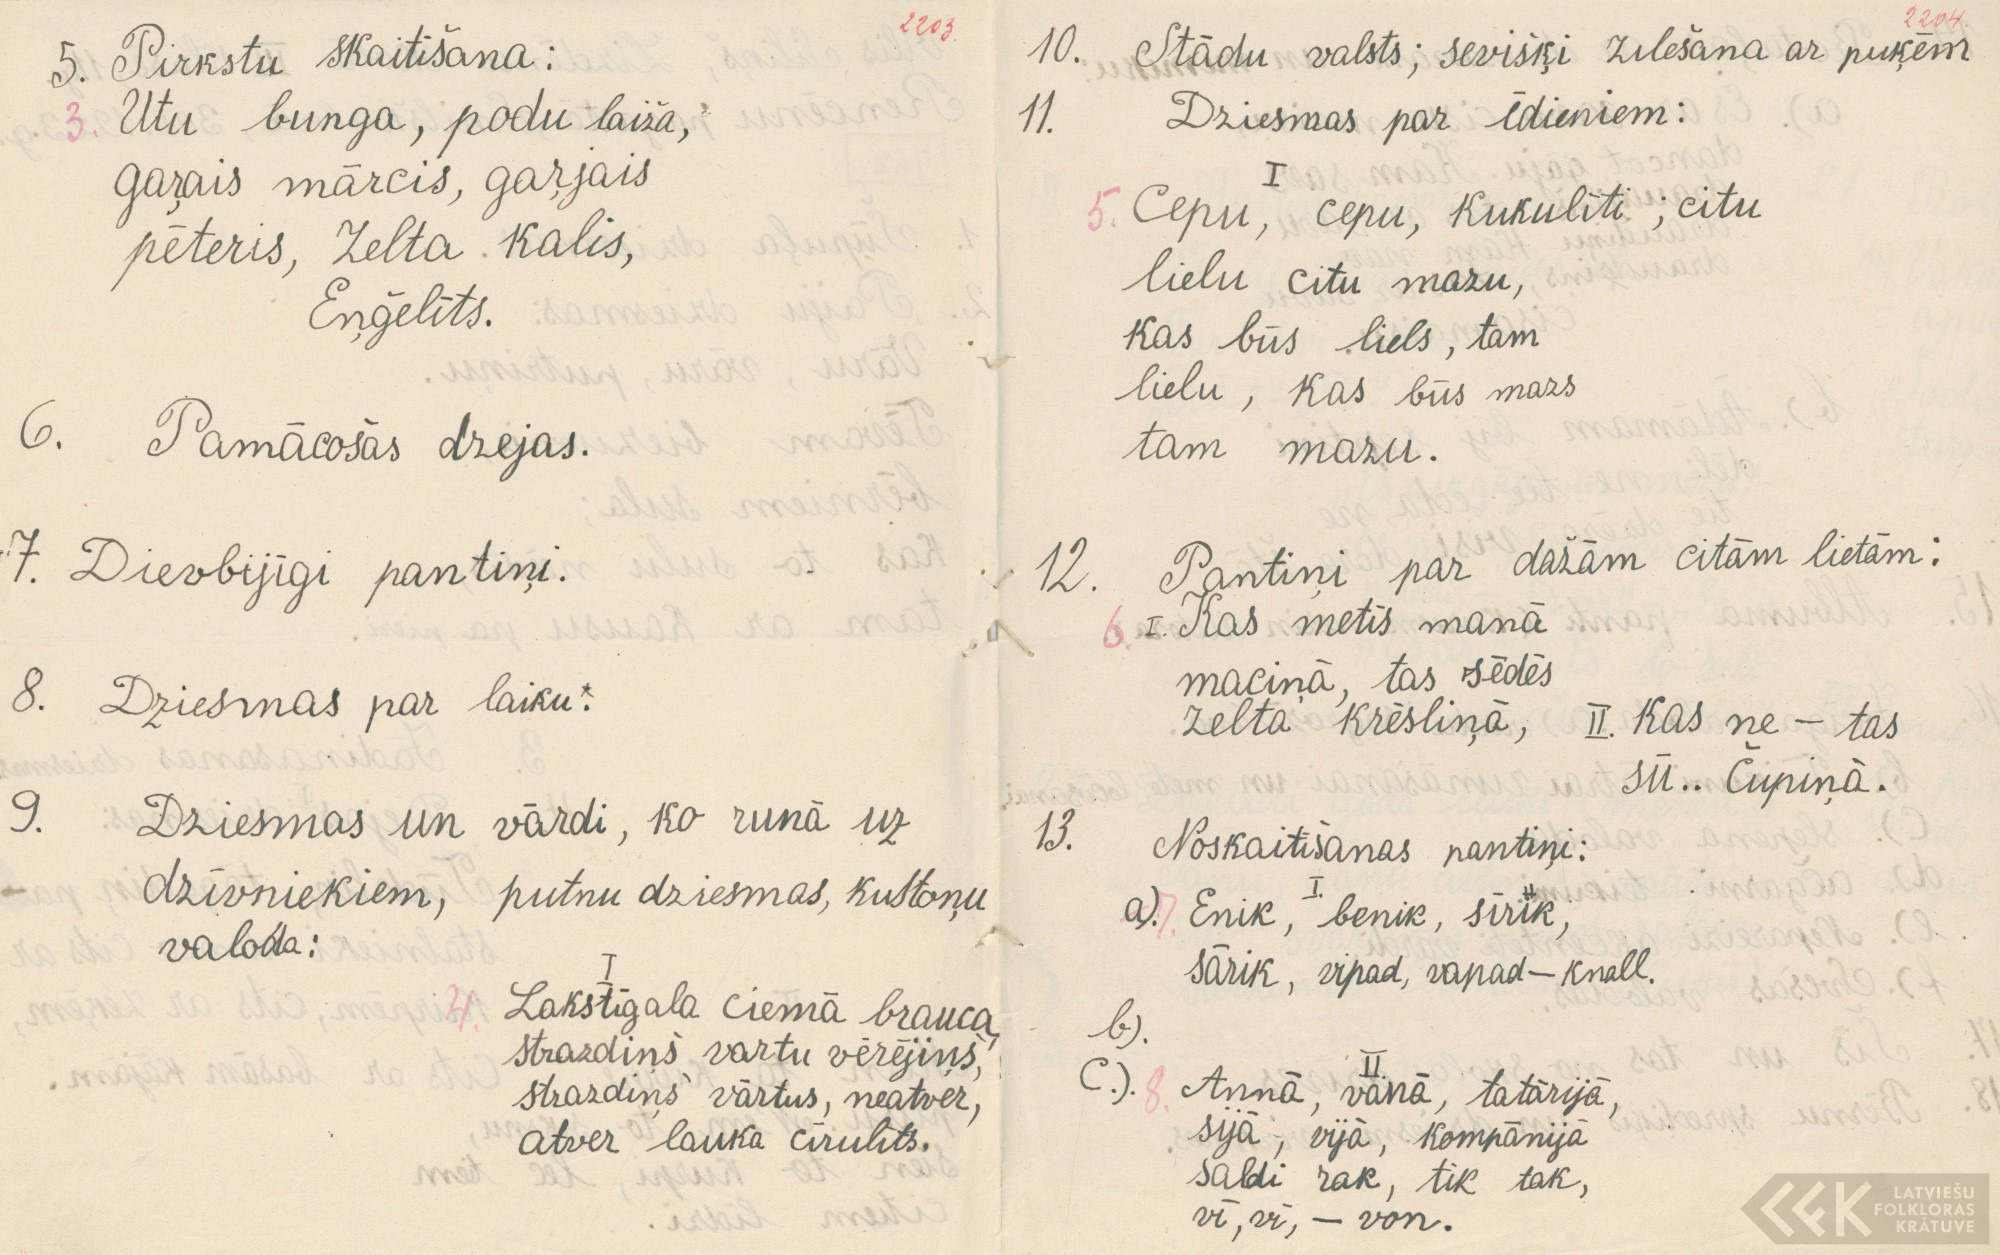 2203.
5. Pirkstu skaitīšana:
3. Utu bunga, podu laiža,
gaŗais mārcis, gaŗjais
pēteris, Zelta kalis,
Eņģelīts.
6. Pamācošās dzejas.
7. Dievbijīgi pantiņi.
8. Dziesmas par laiku:
9. Dziesmas un vārdi, ko runā uz
dzīvniekiem, putnu dziesmas, kustoņu
valoda:
I
4. Lakstīgala ciemā brauca,
strazdiņš vartu vērējiņš,
strazdiņš vārtus, neatvēr,
atver lauka cīrulīts.
2204.
10. Stādu valsts; sevišķi zīlešana ar puķēm
11. Dziesmas par ēdieniem:
I
5. Cepu, cepu, kukulīti; citu
lielu citu mazu,
kas būs liels, tam
lielu, kas būs mazs
tam mazu.
12. Pantiņi par dažām citām lietām:
6. I. Kas metīs manā
maciņā, tas sēdēs
zelta krēsliņā, II. Kas ne – tas
sū.. čupiņā.
13. Noskaitīšanas pantiņi:
I.
a). 7. Enik, benik, sīrik,
sārik, vipad, vapad – knall.
b).
II.
c.). 8. Annā, vanā, tatārijā,
sijā, vijā, kompānijā
saldi rak, tik tak,
vī, vī, – von.
LATVIEŠU
FOLKLORAS
KRĀTUVE